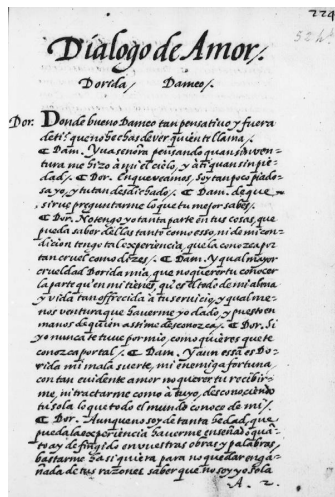 224
Dialogo de Amor/.
Dorida/ Dameo/.
Dor. Donde bueno Dameo tan pensativo y fuera
de ti? que no hechas de ver quien te llama/.
¶ Dam. Yua señora pensando quan sin ven-
tura me hizo à mi el cielo, y à ti quan sin pie-
dad/. ¶ Dor. En que veamos, soy tan poco piado-
sa yo, y tu tan desdichado/. ¶ Dam. de que
sirue preguntarme lo que tu mejor sabes/.
¶ Dor. No tengo yo tanta parte en tus cosas, que
pueda saber dellas tanto como esso, ni de mi con-
dicion tengo tal experiencia, que la conozca por
tan cruel como dezes/. ¶ Dam. Y qual mayor
crueldad Dorida mia, que no querer tu conocer
la parte qu'en mi tienes, qu'es el todo de mi alma
y vida tan offrecida à tu seruicio, y qual me-
nos ventura que hauerme yo dado, y puesto en
manos de quien assi me desconozca/. ¶ Dor. Si
yo nunca te tuue por mio, como quieres que te
conozca por tal/. ¶ Dam. Y aun essa es Do-
rida mi mala suerte, mi enemiga fortuna,
con tan euidente amor no querer tu recibir-
me, ni tractarme como à tuyo, desconociendo
tu sola lo que todo el mundo conoce de mi/.
¶ Dor. Aunque no soy de tanta hedad, que
pueda la experiencia hauerme enseñado quã-
to ay de fingido en vuestras obras y palabras,
bastarme ha si quiera para no quedar enga-
ñada de tus razones saber que no soy yo sola
A. 2.